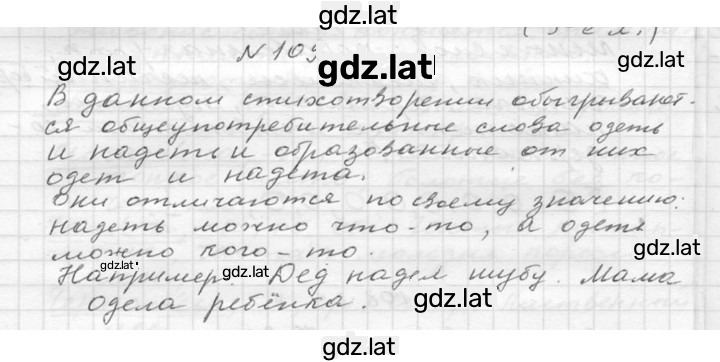 gdz.lat
gdz.lat gdz.lat gdz.lat
В данном стихотворении обыгрывают-
ся общеупотребительные слова одеть
и надеть и образованные от них
одет и надета.
Они отличаются по своему значению:
надеть можно что-то, а одеть
можно кого-то.
gdz.lat
Например: Дед надел шубу. Мама
gdz.lat gdz.lat
одела ребёнка. gdz.lat
gdz.lat